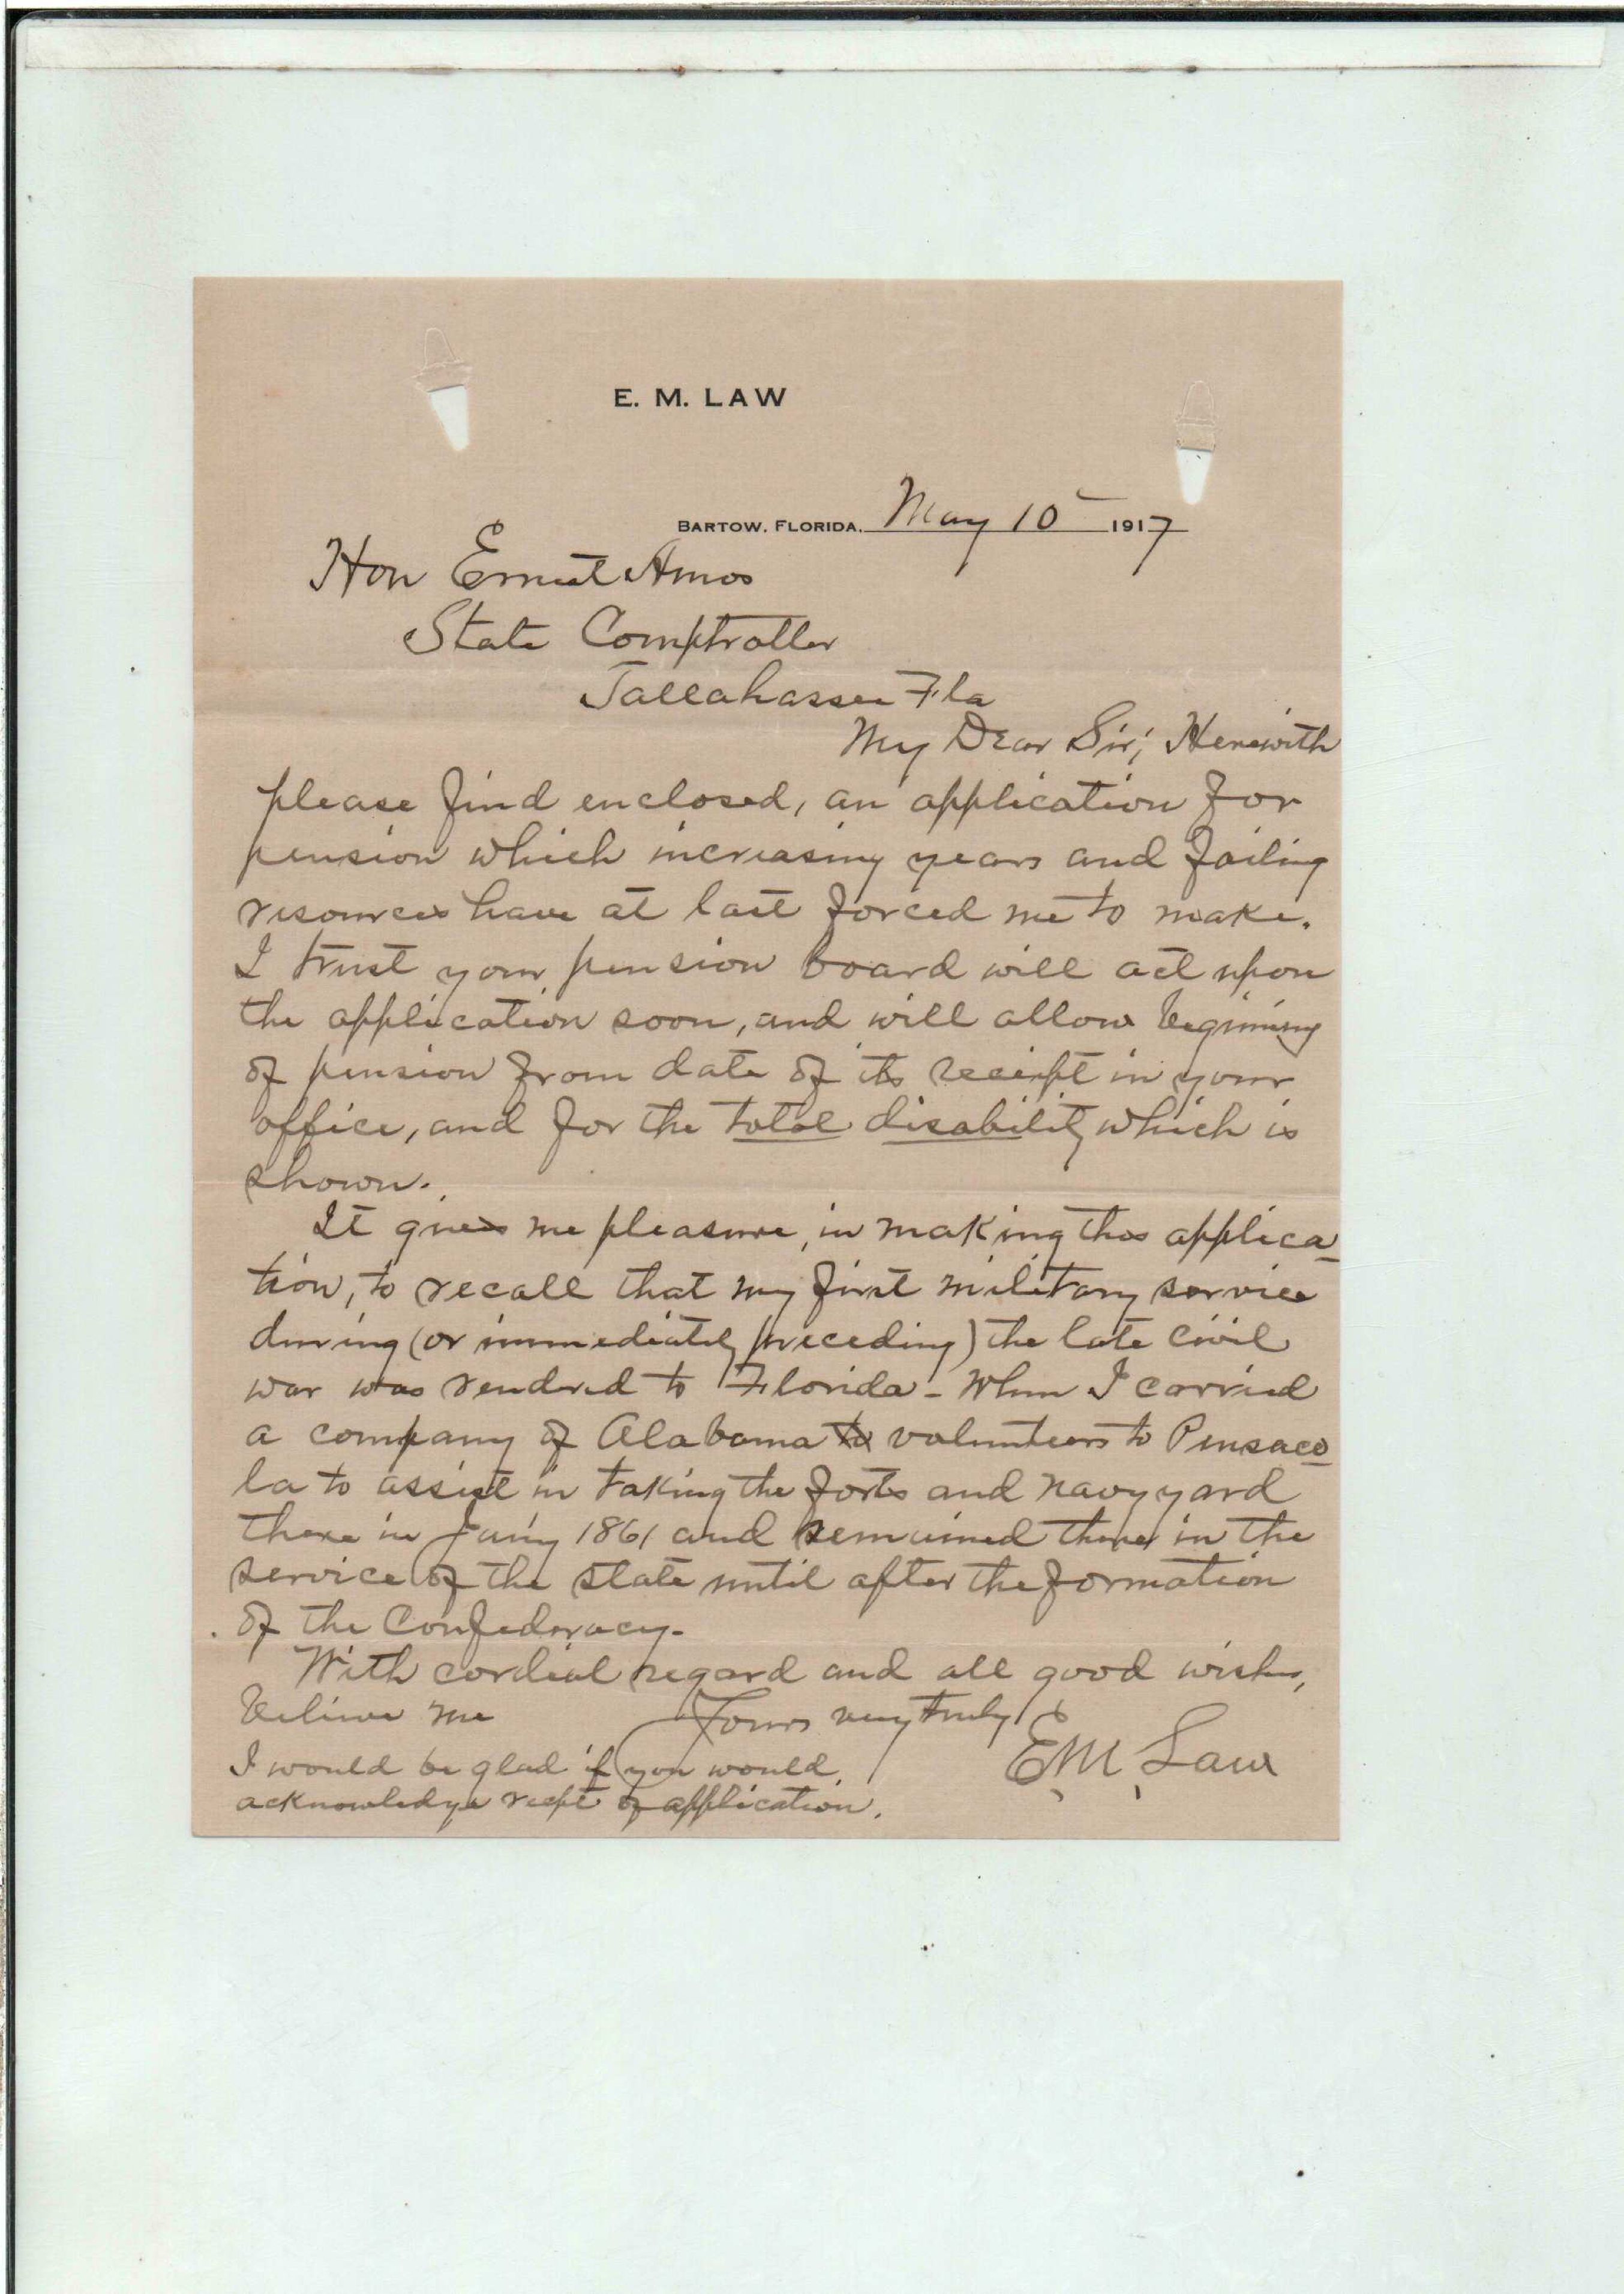 E. M. LAW
BARTOW, FLORIDA. May 10 1917
Hon Ernest Amos
State Comptroller
Tallahassee Fla
My Dear Sir; Herewith
please find enclosed, an application for
pension which increasing years and failing
resources have at last forced me to make.
I trust your pension board will act upon
the application soon, and will allow begining
of pension from date of its receipt in your
office, and for the total disability which is
shown.
It gives me pleasure, in making this applica-
tion, to recall that my first military service
during (or immediately preceding) the late civil
war was rendered to Florida - When I carried
a company of Alabama to volunteers to Pensaco-
la to assist in taking the forts and navy yard
there in Jan'y 1861 and remained there in the
service of the state until after the formation
of the Confederacy.
With cordial regard and all good wishes,
believe me Yours very truly
E. M. Law
I would be glad if you would
acknowledge recpt of application.